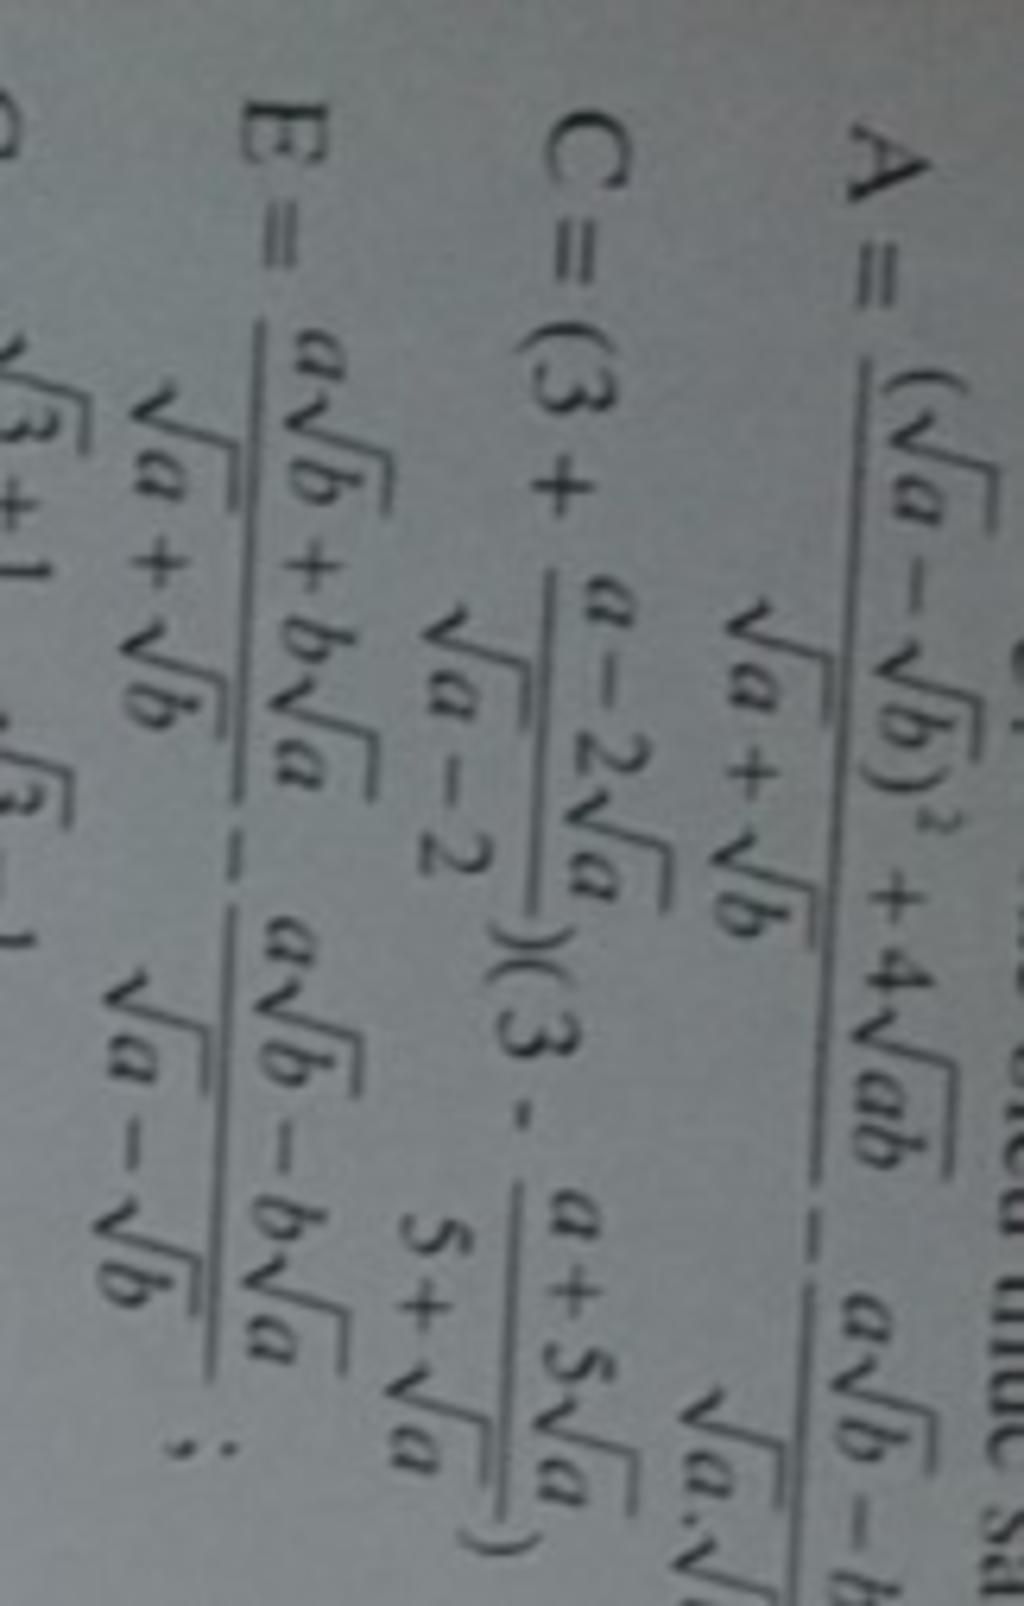 A = \frac{(\sqrt{a} - \sqrt{b})^2 + 4\sqrt{ab}}{\sqrt{a} + \sqrt{b}} - \frac{a\sqrt{b} - b}{\sqrt{a}.\sqrt{}}
C = (3 + \frac{a - 2\sqrt{a}}{\sqrt{a} - 2})(3 - \frac{a + 5\sqrt{a}}{5 + \sqrt{a}})
E = \frac{a\sqrt{b} + b\sqrt{a}}{\sqrt{a} + \sqrt{b}} - \frac{a\sqrt{b} - b\sqrt{a}}{\sqrt{a} - \sqrt{b}} ;
\sqrt{3} + 1